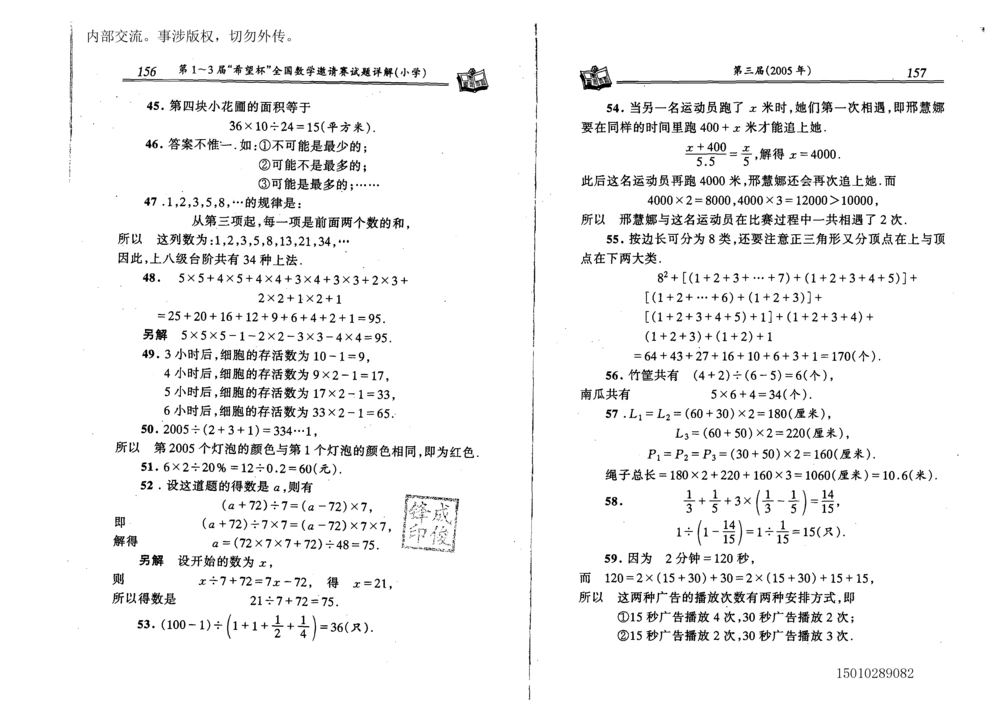 内部交流。事涉版权，切勿外传。
156 第1~3届“希望杯”全国数学邀请赛试题详解(小学)
45. 第四块小花圃的面积等于
36×10÷24=15(平方米).
46. 答案不惟一.如:①不可能是最少的;
②可能不是最多的;
③可能是最多的;……
47 .1,2,3,5,8,…的规律是:
从第三项起,每一项是前面两个数的和,
所以 这列数为:1,2,3,5,8,13,21,34,…
因此,上八级台阶共有 34 种上法.
48. 5×5+4×5+4×4+3×4+3×3+2×3+
2×2+1×2+1
=25+20+16+12+9+6+4+2+1=95.
另解 5×5×5-1-2×2-3×3-4×4=95.
49. 3 小时后,细胞的存活数为 10-1=9,
4 小时后,细胞的存活数为 9×2-1=17,
5 小时后,细胞的存活数为 17×2-1=33,
6 小时后,细胞的存活数为 33×2-1=65.
50. 2005÷(2+3+1)=334…1,
所以 第 2005 个灯泡的颜色与第 1 个灯泡的颜色相同,即为红色.
51. 6×2÷20%=12÷0.2=60(元).
52 . 设这道题的得数是 a,则有
(a+72)÷7=(a-72)×7,
即 (a+72)÷7×7=(a-72)×7×7,
解得 a=(72×7×7+72)÷48=75.
另解 设开始的数为 x,
则 x÷7+72=7x-72, 得 x=21,
所以得数是 21÷7+72=75.
53. (100-1)÷(1+1+1/2+1/4)=36(只).
锋成
印俊
第三届(2005 年) 157
54. 当另一名运动员跑了 x 米时,她们第一次相遇,即邢慧娜
要在同样的时间里跑 400+x 米才能追上她.
(x+400)/5.5=x/5,解得 x=4000.
此后这名运动员再跑 4000 米,邢慧娜还会再次追上她.而
4000×2=8000,4000×3=12000>10000,
所以 邢慧娜与这名运动员在比赛过程中一共相遇了 2 次.
55. 按边长可分为 8 类,还要注意正三角形又分顶点在上与顶
点在下两大类.
8²+[(1+2+3+…+7)+(1+2+3+4+5)]+
[(1+2+…+6)+(1+2+3)]+
[(1+2+3+4+5)+1]+(1+2+3+4)+
(1+2+3)+(1+2)+1
=64+43+27+16+10+6+3+1=170(个).
56. 竹筐共有 (4+2)÷(6-5)=6(个),
南瓜共有 5×6+4=34(个).
57 .L₁=L₂=(60+30)×2=180(厘米),
L₃=(60+50)×2=220(厘米),
P₁=P₂=P₃=(30+50)×2=160(厘米).
绳子总长=180×2+220+160×3=1060(厘米)=10.6(米).
58. 1/3+1/5+3×(1/3-1/5)=14/15,
1÷(1-14/15)=1÷1/15=15(只).
59. 因为 2 分钟=120 秒,
而 120=2×(15+30)+30=2×(15+30)+15+15,
所以 这两种广告的播放次数有两种安排方式,即
①15 秒广告播放 4 次,30 秒广告播放 2 次;
②15 秒广告播放 2 次,30 秒广告播放 3 次.
15010289082